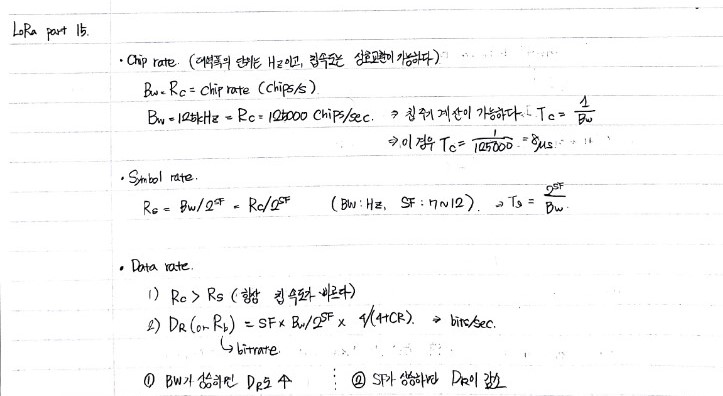 LoRa part 15.
· Chip rate. (대역폭의 단위는 Hz이고, 칩속도는 상호교환이 가능하다)
Bw = Rc = chip rate (chips/s)
Bw = 125kHz = Rc = 125000 chips/sec. → 칩 주기 계산이 가능하다. Tc = 1/Bw
→ 이 경우 Tc = 1/125000 = 8μs
· Symbol rate.
Rs = Bw/2^SF = Rc/2^SF (BW : Hz, SF : 7~12). → Ts = 2^SF/Bw.
· Data rate.
1) Rc > Rs (항상 칩 속도가 빠르다)
2) DR (or Rb) = SF × Bw/2^SF × 4/(4+CR). → bits/sec.
↳ bitrate
① BW가 상승하면 DR도 ↑ ② SF가 상승하면 DR이 감소